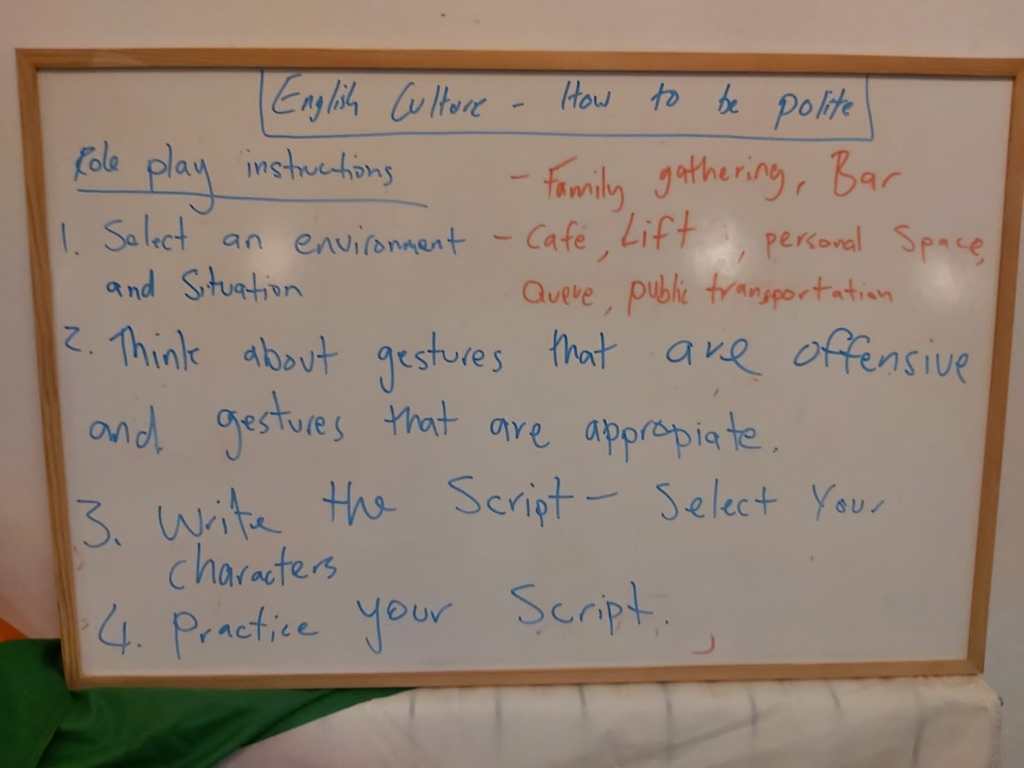 English Culture - How to be polite
Role play instructions
- Family gathering, Bar
1. Select an environment
- Cafe, Lift, personal Space,
and Situation
Queue, public transportation
2. Think about gestures that are offensive
and gestures that are appropiate.
3. Write the Script - Select Your
characters
4. Practice your Script.